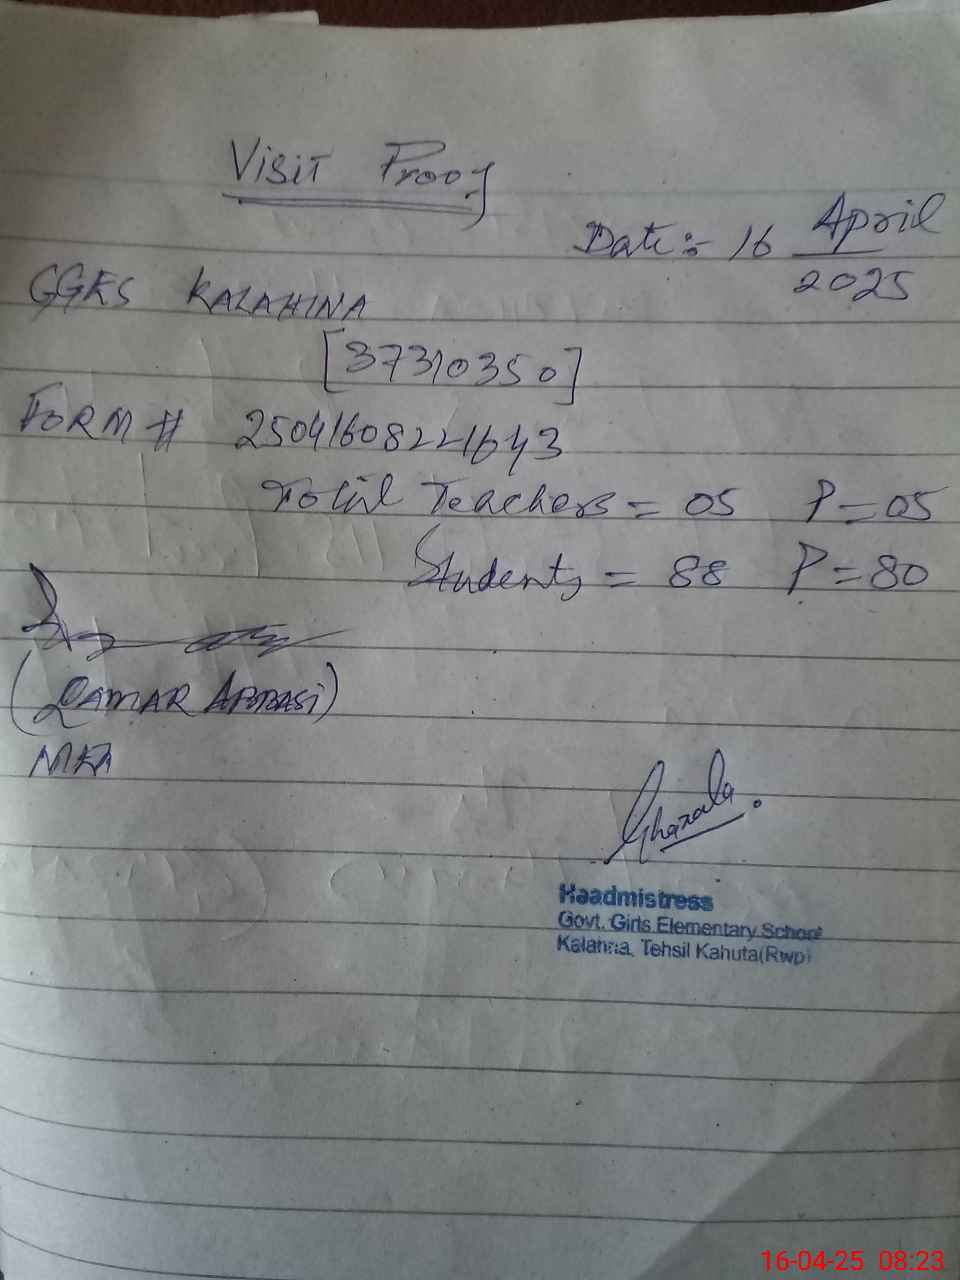 Visit Proof
Date:- 16 April 2025
GGES KALAHINA
[37310350]
FORM # 25041608221643
Total Teachers = 05 P = 05
Students = 88 P = 80
(QAMAR ABBASI)
MEA
Ghazala.
Haadmistress
Govt. Girls Elementary School
Kalahna, Tehsil Kahuta(Rwp)
16-04-25 08:23